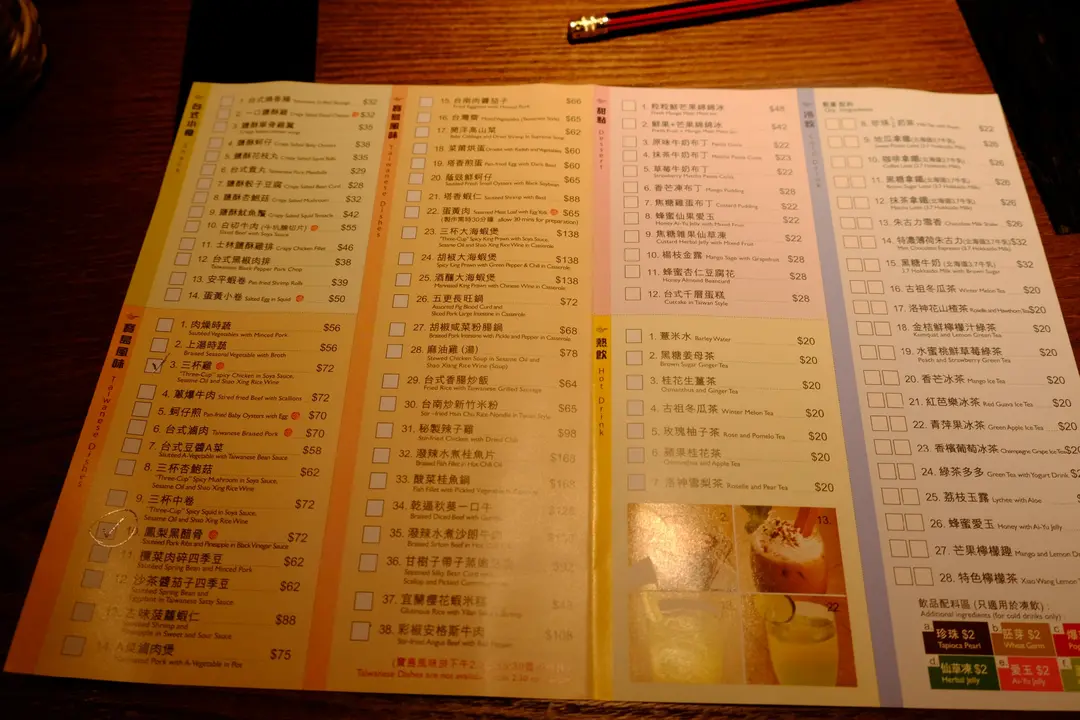 台式小食
Snacks
$32
2. 一口鹽酥雞
$32
3. 鹽酥單骨雞翼
$35
4. 鹽酥蚵仔 Crispy Salted Baby Oysters
$38
5. 鹽酥花枝丸 Crispy Salted Squid Balls
$35
6. 台式貢丸
$29
7. 鹽酥骰子豆腐 Crispy Salted Bean Curd
$28
8. 鹽酥杏鮑菇 Crispy Salted Mushroom
$32
9. 鹽酥魷魚鬚 Crispy Salted Squid Tentacle
$42
10. 台式切牛肉
Sliced Beef with Soya Sauce
$55
11. 士林鹽酥雞排 Crispy Chicken Fillet
$46
12. 台式黑椒肉排
Taiwanese Black Pepper Pork Chop
$38
13. 安平蝦卷 Pan-fried Shrimp Rolls
$39
14. 蛋黃小卷 Salted Egg in Squid
$50
寶島風味 Taiwanese Dishes
1. 肉燥時蔬
Sautéed Vegetables with Minced Pork
$56
2. 上湯時蔬
Braised Seasonal Vegetable with Broth
$56
3. 三杯雞
"Three-Cup" spicy Chicken in Soya Sauce,
Sesame Oil and Shao Xing Rice Wine
$72
4. 蔥爆牛肉 Stir-fried Beef with Scallions
$72
5. 蚵仔煎 Pan-fried Baby Oysters with Egg
$70
6. 台式滷肉 Taiwanese Braised Pork
$70
7. 台式豆醬A菜
Sautéed A-Vegetable with Taiwanese Bean Sauce
$58
8. 三杯杏鮑菇
"Three-Cup" Spicy Mushroom in Soya Sauce,
Sesame Oil and Shao Xing Rice Wine
$62
9. 三杯中卷
"Three-Cup" Spicy Squid in Soya Sauce,
Sesame Oil and Shao Xing Rice Wine
$72
鳳梨黑醋骨
Sautéed Pork Ribs and Pineapple in Black Vinegar Sauce
$72
11. 欖菜肉碎四季豆
Sautéed Spring Bean and Minced Pork
$62
12. 沙茶醬茄子四季豆
Sautéed Spring Bean and
Eggplant in Taiwanese Satay Sauce
$62
13. 古味菠蘿蝦仁
Sautéed Shrimp and
Pineapple in Sweet and Sour Sauce
$88
14. A菜滷肉煲
Simmered Pork with A-Vegetable in Pot
$75
寶島風味 Taiwanese Dishes
15. 台南肉醬茄子
$66
16. 台灣菜
$65
17.
$62
18. 菜蘭烘蛋 Omelet with Radish and Vegetables
$60
19. 塔香煎蛋 Pan-fried Egg with Diced Basil
$60
20. 蔭豉鮮蚵仔
Sautéed Fresh Small Oysters with Black Soybean
$65
21. 塔香蝦仁 Sautéed Shrimp with Basil
$88
22. 蛋黃肉 Steamed Meat Loaf with Egg Yolk
$65
(製作需時30分鐘 allow 30 mins for preparation)
23. 三杯大海蝦煲
"Three-Cup" Spicy King Prawn with Soya Sauce,
Sesame Oil and Shao Xing Rice Wine in Casserole
$138
24. 胡椒大海蝦煲
Spicy King Prawn with Green Pepper & Chili in Casserole
$138
25. 酒釀大海蝦煲
Marinated King Prawn with Chinese Wine in Casserole
$138
26. 五更長旺鍋
Assorted Pig Blood Curd and
Sliced Pork Large Intestine in Casserole
$72
27. 胡椒咸菜粉腸鍋
Braised Pork Intestine with Pickle and Pepper in Casserole
$68
28. 麻油雞 (湯)
Stewed Chicken Soup in Sesame Oil and
Shao Xing Rice Wine (Soup)
$78
29. 台式香腸炒飯
Fried Rice with Taiwanese Grilled Sausage
$64
30. 台南炒新竹米粉
Stir-fried Hsin Chu Rice Noodle in Tainan Style
$65
31. 秘製辣子雞
Stir-fried Chicken with Dried Chili
$98
32. 潑辣水煮桂魚片
Braised Fish Fillet in Hot Chili Oil
$168
33. 酸菜桂魚鍋
Fish Fillet with Pickled Vegetable in
$168
34. 乾逼秋葵一口牛
Braised Diced Beef with Garlic
35. 潑辣水煮沙朗牛肉
Braised Sirloin Beef in Hot Chili Oil
36. 甘樹子帶子蒸嫩豆腐
Steamed Silky Bean Curd with
Scallop and Pickled
37. 宜蘭櫻花蝦米糕
Glutinous Rice with Yilan
38. 彩椒安格斯牛肉
Stir-fried Angus Beef with Bell Pepper
$108
Taiwanese Dishes are not available
甜點 Dessert
1. 粒粒鮮芒果綿綿冰
Fresh Mango Mein Mein Ice
$48
2. 鮮果+芒果綿綿冰
Fresh Fruit + Mango Mein Mein Ice
$42
3. 原味牛奶布丁 Panna Cotta
$22
4. 抹茶牛奶布丁 Matcha Panna Cotta
$23
5. 草莓牛奶布丁
Strawberry Panna Cotta
$22
6. 香芒凍布丁 Mango Pudding
$28
7. 焦糖雞蛋布丁 Custard Pudding
$22
8. 蜂蜜仙果愛玉
Ai-Yu Jelly with Mixed Fruit
$22
9. 焦糖雜果仙草凍
Custard Herbal Jelly with Mixed Fruit
$22
10. 楊枝金露 Mango Sago with Grapefruit
$28
11. 蜂蜜杏仁豆腐花
Honey Almond Beancurd
$28
12. 台式千層蛋糕
Cake in Taiwan Style
$28
熱飲 Hot Drink
1. 薏米水 Barley Water
$20
2. 黑糖姜母茶
Brown Sugar Ginger Tea
$20
3. 桂花生薑茶
Osmanthus and Ginger Tea
$20
4. 古祖冬瓜茶 Winter Melon Tea
$20
5. 玫瑰柚子茶 Rose and Pomelo Tea
$20
6. 蘋果桂花茶
Osmanthus and Apple Tea
$20
7. 洛神雪梨茶 Roselle and Pear Tea
$20
2.
13.
22
冷飲 Cold Drink
8. 珍珠 奶茶
$22
9. 地瓜拿鐵(北海道3.7牛乳)
Sweet Potato Latte (3.7 Hokkaido Milk)
$26
10. 咖啡拿鐵(北海道3.7牛乳)
Coffee Latte (3.7 Hokkaido Milk)
$26
11. 黑糖拿鐵(北海道3.7牛乳)
Brown Sugar Latte (3.7 Hokkaido Milk)
$26
12. 抹茶拿鐵(北海道3.7牛乳)
Matcha Latte (3.7 Hokkaido Milk)
$26
13. 朱古力雪香 Chocolate Milk Shake
$26
14. 特濃薄荷朱古力(北海道3.7牛乳)
Mint Chocolate Espresso (3.7 Hokkaido Milk)
$32
15. 黑糖牛奶 (北海道3.7牛乳)
3.7 Hokkaido Milk with Brown Sugar
$32
16. 古祖冬瓜茶 Winter Melon Tea
$20
17. 洛神花山楂茶 Roselle and Hawthorn Tea
$20
18. 金桔鮮檸檬汁綠茶
Kumquat and Lemon Green Tea
$20
19. 水蜜桃鮮草莓綠茶
Peach and Strawberry Green Tea
$20
20. 香芒冰茶 Mango Ice Tea
$20
21. 紅芭樂冰茶 Red Guava Ice Tea
$20
22. 青萍果冰茶 Green Apple Ice Tea
$20
23. 香檳葡萄冰茶 Champagne Grape Ice Tea
$20
24. 綠茶多多 Green Tea with Yogurt Drink
25. 荔枝玉露 Lychee with Aloe
26. 蜂蜜愛玉 Honey with Ai-Yu Jelly
27. 芒果檸檬趣 Mango and Lemon
28. 特色檸檬茶 Xiao Wang Lemon
飲品配料區 (只適用於凍飲) :
Additional ingredients (for cold drinks only)
a. 珍珠 $2
Tapioca Pearl
b. 胚芽 $2
Wheat Germ
c.
d. 仙草凍 $2
Herbal Jelly
e. 愛玉 $2
Ai-Yu Jelly